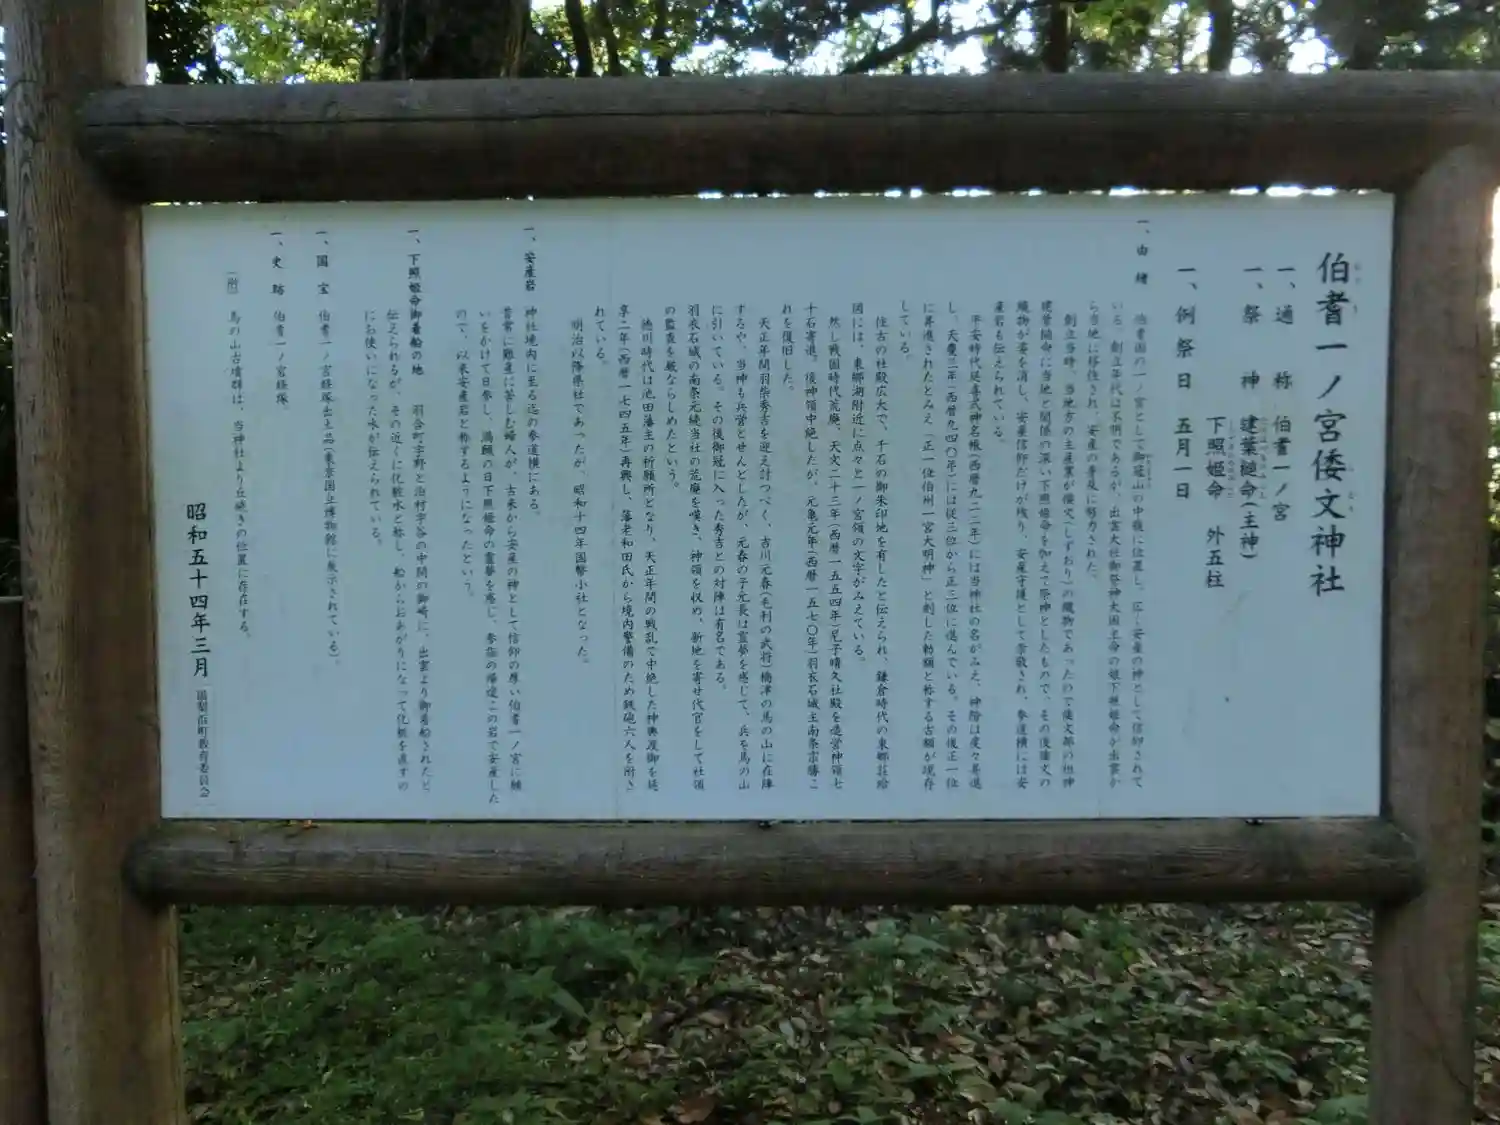 伯耆一ノ宮倭文神社
一、通　称　伯耆一ノ宮
一、祭　神　建葉槌命(主神)
下照姫命　外五柱
一、例祭日　五月一日
一、由　緒
伯耆国の一ノ宮として御冠山の中腹に位置し、広く安産の神として信仰されて
いる。創立年代は不明であるが、出雲大社御祭神大国主命の娘下照姫命が出雲か
ら当地に移住され、安産の普及に努力された。
創立当時、当地方の主産業が倭文(しずおり)の織物であったので倭文部の祖神
建葉槌命に当地と関係の深い下照姫命を加えて祭神としたもので、その後倭文の
織物が姿を消し、安産信仰だけが残り、安産守護として崇敬され、参道横には安
産岩も伝えられている。
平安時代延喜式神名帳(西暦九二二年)には当神社の名がみえ、神階は度々昇進
し、天慶三年(西暦九四〇年)には従三位から正三位に進んでいる。その後正一位
に昇進されたとみえ「正一位伯州一宮大明神」と刻した勅額と称する古額が現存
している。
往古の社殿広大で、千石の御朱印地を有したと伝えられ、鎌倉時代の東郷荘絵
図には、東郷湖附近に点々と一ノ宮領の文字がみえている。
然し戦国時代荒廃、天文二十三年(西暦一五五四年)尼子晴久社殿を造営神領七
十石寄進。後神領中絶したが、元亀元年(西暦一五七〇年)羽衣石城主南条宗勝こ
れを復旧した。
天正年間羽柴秀吉を迎え討つべく、吉川元春(毛利の武将)橋津の馬の山に在陣
するや、当神も兵営とせんとしたが、元春の子元長は霊夢を感じて、兵を馬の山
に引いている。その後御冠に入った秀吉との対陣は有名である。
羽衣石城の南条元続当社の荒廃を嘆き、神領を収め、新地を寄せ代官をして社領
の監査を厳ならしめたという。
徳川時代は池田藩主の祈願所となり、天正年間の戦乱で中絶した神輿渡御を延
享二年(西暦一七四五年)再興し、藩老和田氏から境内警備のため鉄砲六人を附さ
れている。
明治以降県社であったが、昭和十四年国幣小社となった。
一、安産岩　神社境内に至る迄の参道横にある。
昔常に難産に苦しむ婦人が、古来から安産の神として信仰の厚い伯耆一ノ宮に願
いをかけて日参し、満願の日下照姫命の霊夢を感じ、参詣の帰途この岩で安産した
ので、以来安産岩と称するようになったという。
一、下照姫命御着船の地　羽合町宇野と泊村宇谷の中間の御崎に、出雲より御着船されたと
伝えられるが、その近くに化粧水と称し、船からおあがりになって化粧を直すの
にお使いになった水が伝えられている。
一、国　宝　伯耆一ノ宮経塚出土品(東京国立博物館に展示されている)。
一、史　跡　伯耆一ノ宮経塚。
(附)　馬の山古墳群は、当神社より丘続きの位置に存在する。
昭和五十四年三月　湯梨浜町教育委員会